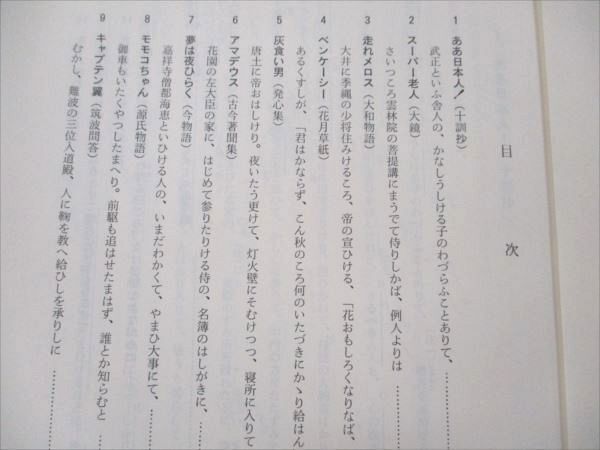 目次
1 ああ日本人!(十訓抄)
武正といふ舎人の、かなしうしける子のわづらふことありて、
2 スーパー老人(大鏡)
さいつころ雲林院の菩提講にまうでて侍りしかば、例人よりは……
3 走れメロス(大和物語)
大井に季縄の少将住みけるころ、帝の宣ひける、「花おもしろくなりなば、
4 ベンケーシー(花月草紙)
あるくすしが、「君はかならず、こん秋のころ何のいたづきにかゝり給はん
5 灰食い男(発心集)
唐土に帝おはしけり。夜いたう更けて、灯火壁にそむけつつ、寝所に入りて
6 アマデウス(古今著聞集)
花園の左大臣の家に、はじめて参りたりける侍の、名簿のはしがきに、……
7 夢は夜ひらく(今物語)
嘉祥寺僧都海恵といひける人の、いまだわかくて、やまひ大事にて、……
8 モモコちゃん(源氏物語)
御車もいたくやつしたまへり。前駆も追はせたまはず、誰とか知らむと……
9 キャプテン翼(筑波問答)
むかし、難波の三位入道殿、人に鞠を教へ給ひしを承りしに……